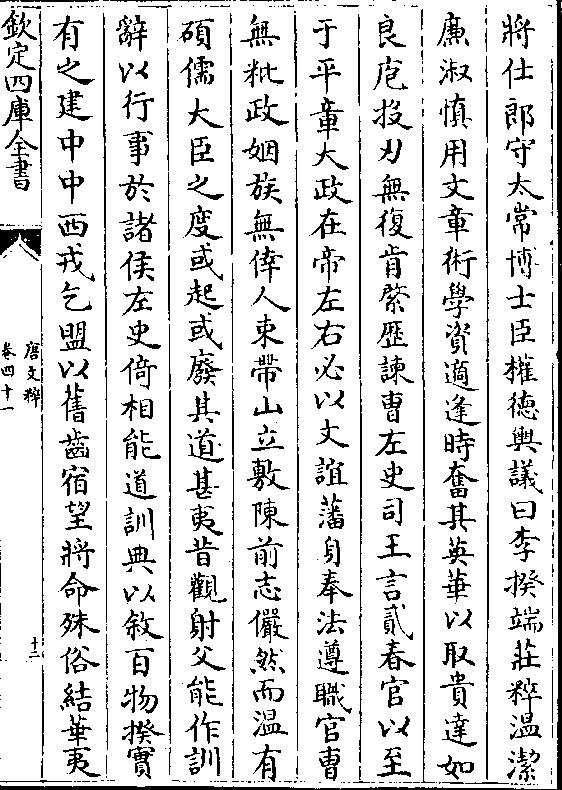 將仕郎守太常博士臣權德輿議曰李揆端莊粹溫潔
廉淑慎用文章術學資適逢時奮其英華以取貴達如
良庖投刃無復肯綮歷諫曹左史司王言貳春官以至
于平章大政在帝左右必以文誼藩身奉法遵職官曹
無粃政姻族無倖人束帶山立敷陳前志儼然而溫有
碩儒大臣之度或起或廢其道甚夷昔觀射父能作訓
辭以行事於諸侯左史倚相能道訓典以敘百物揆實
有之建中中西戎乞盟以舊齒宿望將命殊俗結華夷
欽定四庫全書
唐文粹
卷四十一
十二